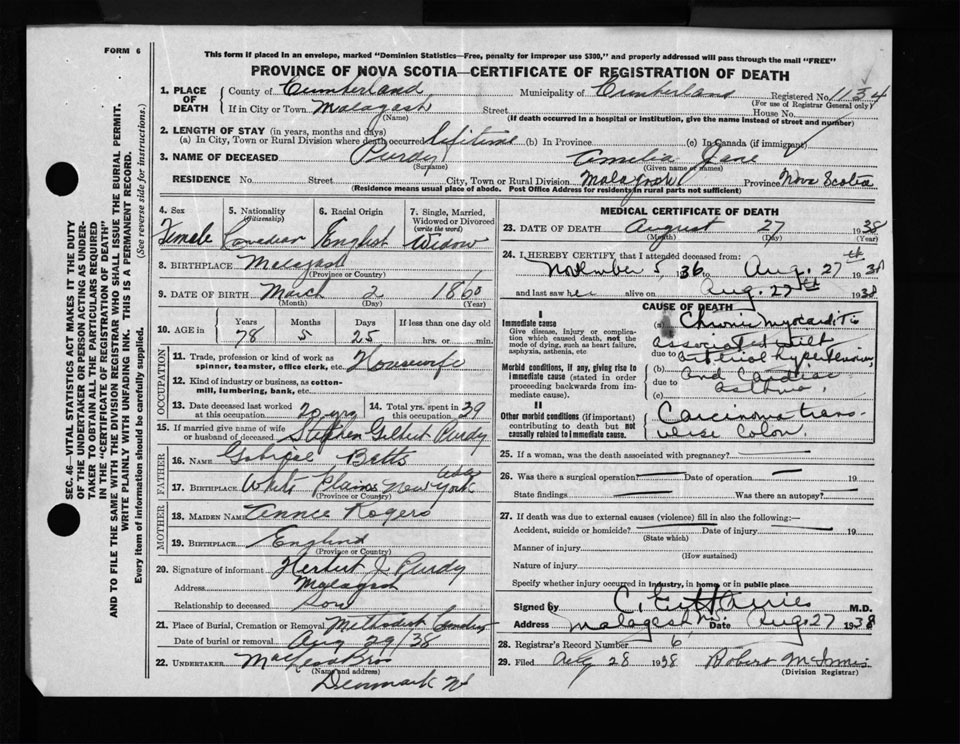 FORM 6
This form if placed in an envelope, marked "Dominion Statistics—Free, penalty for improper use $300," and properly addressed will pass through the mail "FREE"
PROVINCE OF NOVA SCOTIA—CERTIFICATE OF REGISTRATION OF DEATH
1. PLACE OF DEATH
County of Cumberland Municipality of Cumberland Registered No. 1134
(For use of Registrar General only)
If in City or Town Malagash Street House No.
(Name) (If death occurred in a hospital or institution, give the name instead of street and number)
2. LENGTH OF STAY (in years, months and days)
(a) In City, Town or Rural Division where death occurred lifetime (b) In Province (c) In Canada (if immigrant)
3. NAME OF DECEASED Purdy Amelia Jane
(Surname) (Given name or names)
RESIDENCE No. Street City, Town or Rural Division Malagash Province Nova Scotia
(Residence means usual place of abode. Post Office Address for residents in rural parts not sufficient)
4. Sex Female
5. Nationality (Citizenship) Canadian
6. Racial Origin English
7. Single, Married, Widowed or Divorced (write the word) Widow
8. BIRTHPLACE Malagash
(Province or Country)
9. DATE OF BIRTH March 2 1860
(Month) (Day) (Year)
10. AGE in Years Months Days If less than one day old
78 5 25 hrs. or min.
OCCUPATION
11. Trade, profession or kind of work as spinner, teamster, office clerk, etc. Housewife
12. Kind of industry or business, as cotton-mill, lumbering, bank, etc.
13. Date deceased last worked at this occupation 20 yrs
14. Total yrs. spent in this occupation 39
15. If married give name of wife or husband of deceased Stephen Gilbert Purdy
FATHER
16. NAME Betts
17. BIRTHPLACE White Plains New York
(Province or Country)
MOTHER
18. MAIDEN NAME Rogers
19. BIRTHPLACE England
(Province or Country)
20. Signature of informant Herbert J. Purdy
Address Malagash
Relationship to deceased Son
21. Place of Burial, Cremation or Removal Methodist
Date of burial or removal Aug 29/38
22. UNDERTAKER Bros
(Name and address)
Denmark NS
MEDICAL CERTIFICATE OF DEATH
23. DATE OF DEATH August 27 1938
(Month) (Day) (Year)
24. I HEREBY CERTIFY that I attended deceased from:
November 5, 1936 to Aug. 27th 1938
and last saw her alive on Aug. 27th 1938
CAUSE OF DEATH
I
Immediate cause
Give disease, injury or complication which caused death, not the mode of dying, such as heart failure, asphyxia, asthenia, etc.
Morbid conditions, if any, giving rise to immediate cause (stated in order proceeding backwards from immediate cause).
II
Other morbid conditions (if important) contributing to death but not causally related to immediate cause.
(a) Chronic Myocarditis
associated with
due to arterial hypertension,
(b) and Cardiac
due to asthma.
(c)
Carcinoma trans-
verse Colon.
25. If a woman, was the death associated with pregnancy? —
26. Was there a surgical operation? — Date of operation — 19
State findings — Was there an autopsy? —
27. If death was due to external causes (violence) fill in also the following:—
Accident, suicide or homicide? Date of injury 19
(State which)
Manner of injury
(How sustained)
Nature of injury
Specify whether injury occurred in industry, in home or in public place
Signed by M.D.
Address Malagash N.S. Date Aug. 27 1938
28. Registrar's Record Number 6
29. Filed 28 1938 Robert McInnis
(Division Registrar)
SEC. 46—VITAL STATISTICS ACT MAKES IT THE DUTY
OF THE UNDERTAKER OR PERSON ACTING AS UNDER-
TAKER TO OBTAIN ALL THE PARTICULARS REQUIRED
IN THE "CERTIFICATE OF REGISTRATION OF DEATH"
AND TO FILE THE SAME WITH THE DIVISION REGISTRAR WHO SHALL ISSUE THE BURIAL PERMIT.
WRITE PLAINLY WITH UNFADING INK. THIS IS A PERMANENT RECORD.
Every item of information should be carefully supplied. (See reverse side for instructions.)